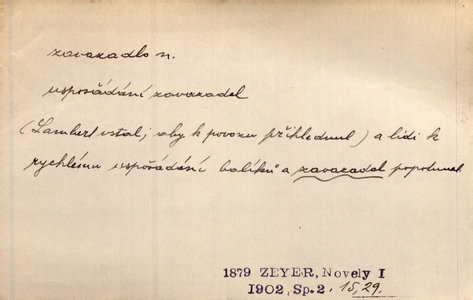 zavazadlo n.
uspořádání zavazadel
(Lambert vstal, aby k povozu přihlednul) a lidi k
rychlému uspořádání balíků a zavazadel popohnal
1879 ZEYER, Novely I
1902, Sp.2. 15,29.